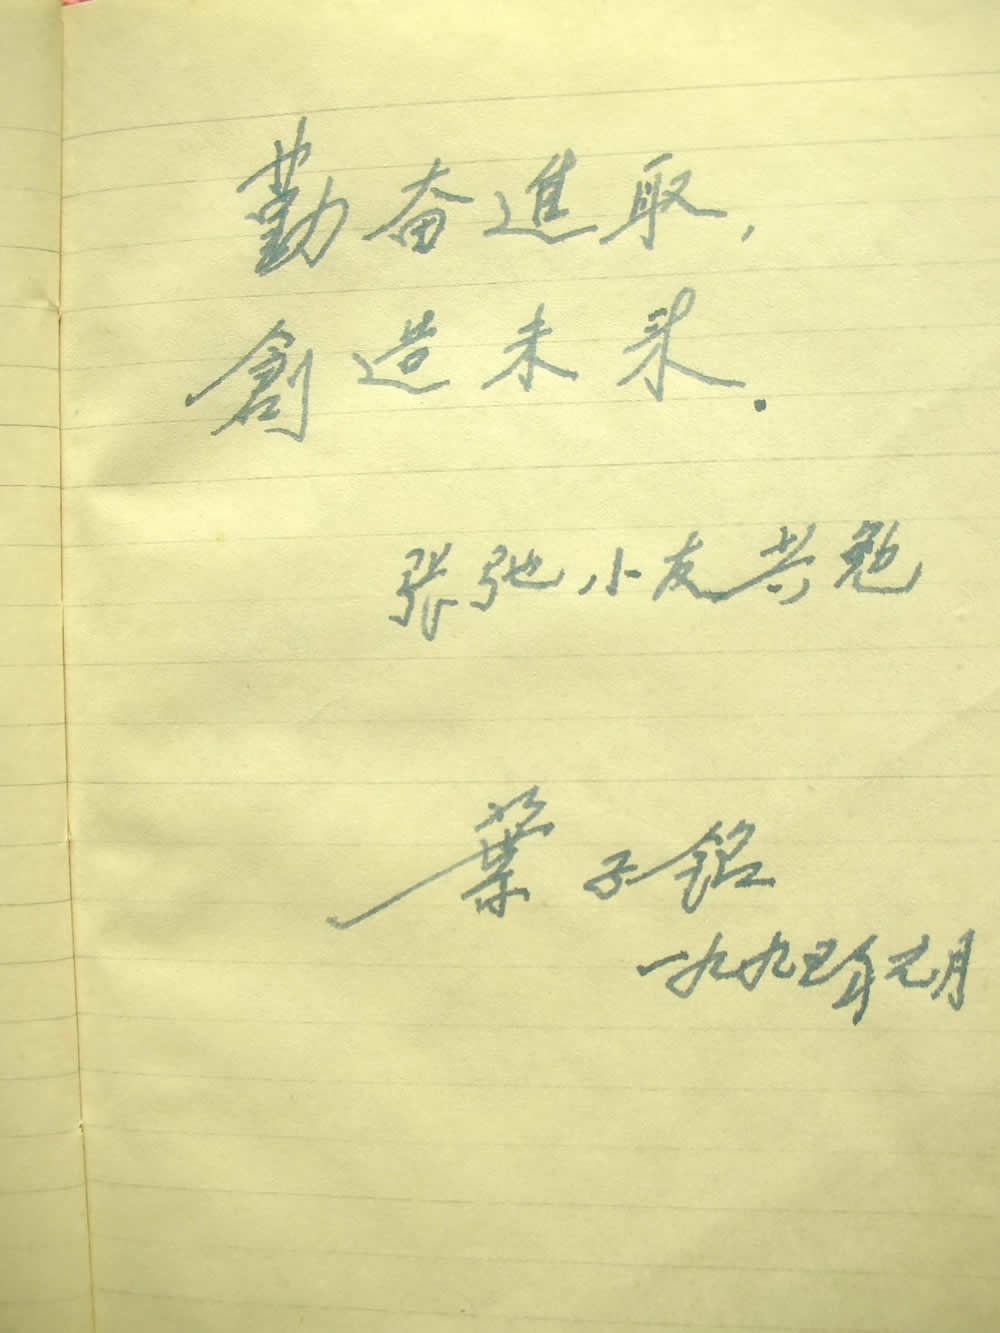 勤奋進取，
創造未来.
张弛小友共勉
葉子銘
一九九五年元月